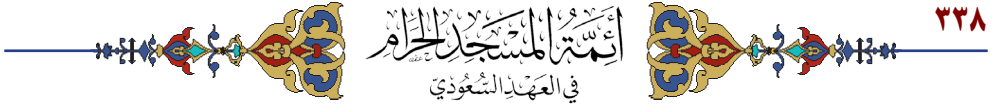 ٣٣٨
أَئِمَّةُ المَسْجِدِ الحَرَامِ
في العَهْدِ السُّعُودِيّ